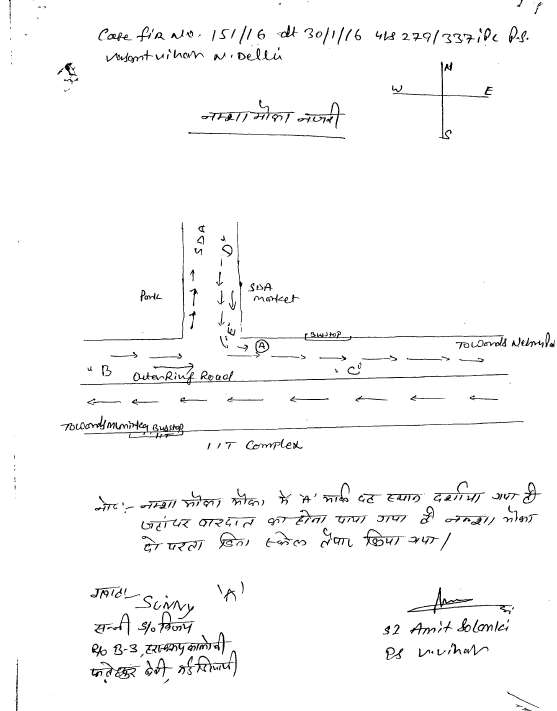 Case fir No. 151/16 dt 30/1/16 u/s 279/337 iPC P.S.
Vasant vihar N. Delhi
N
W E
S
नक्शा मौका नजरी
SDA
D
Park
SDA
market
E
A
Bus stop
Towards Nehru
B
Outer Ring Road
C
Towards Munirka
Bus stop
IIT Complex
नोट:- नक्शा मौका में 'A' मार्क वह स्थान दर्शाया गया है
जहां पर वारदात का होना पाया गया है नक्शा मौका
दो परता बिना स्केल तैयार किया गया।
गवाह
Sunny 'A'
सन्नी S/o विजय
R/o B-3,
फतेहपुर बेरी, नई दिल्ली
SI Amit Solanki
PS V. Vihar